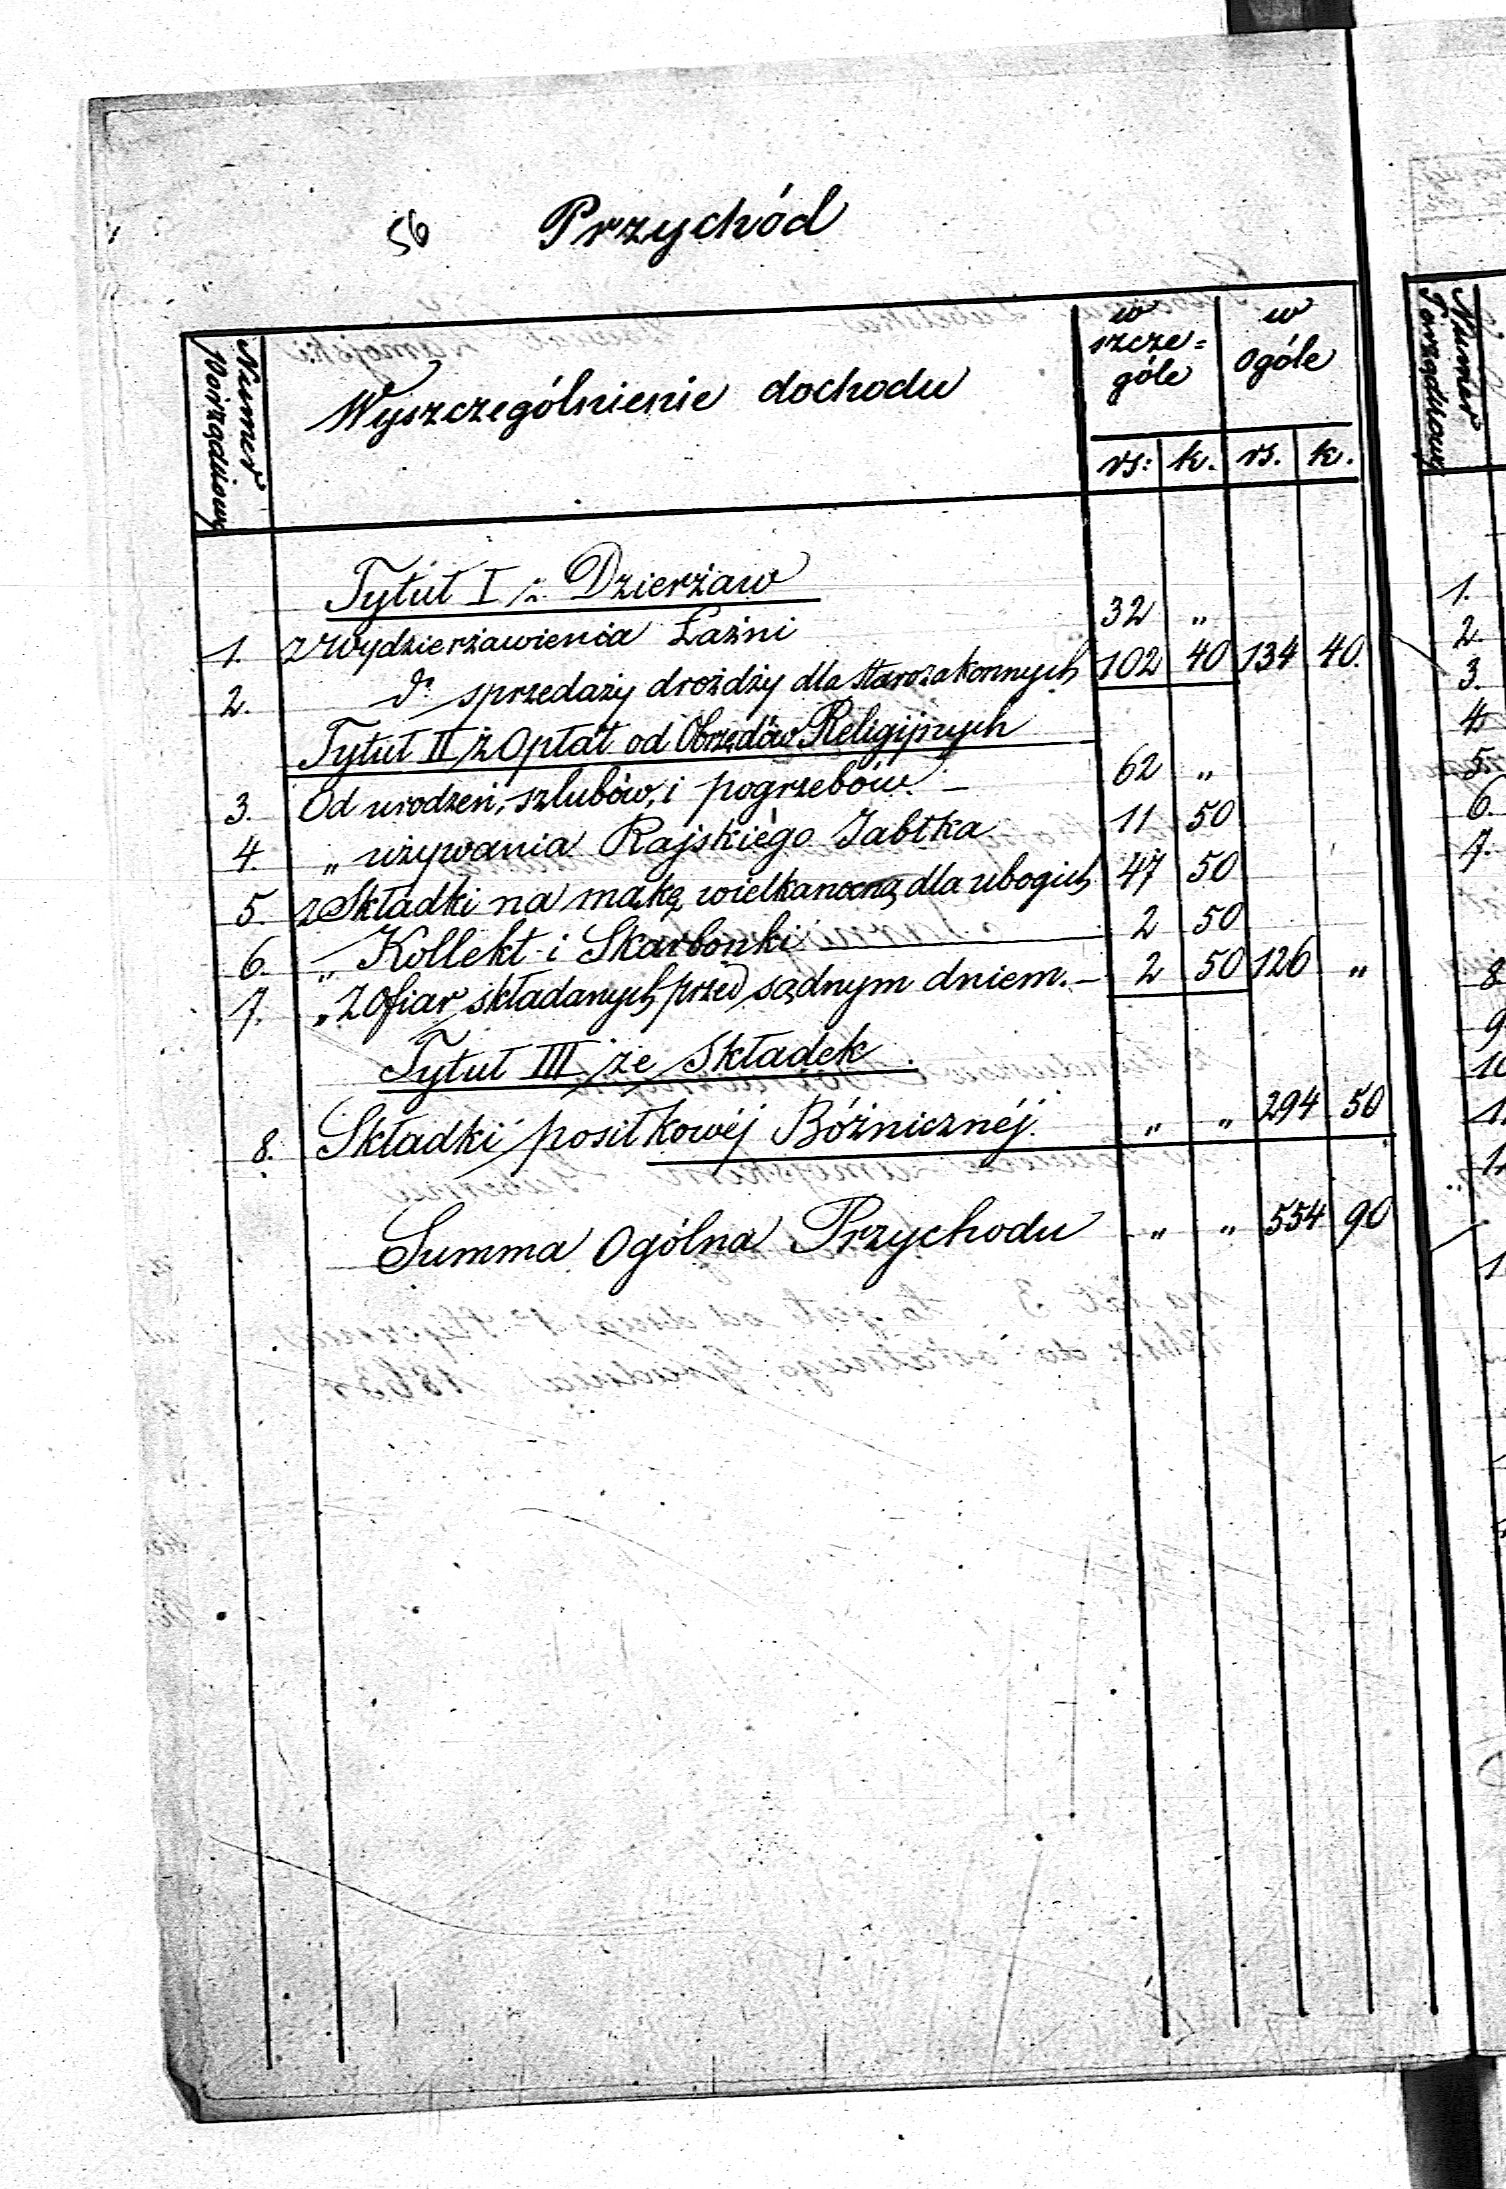 56 Przychód
Numer Porządkowy
Wyszczególnienie dochodu
w szcze= góle
w ogóle
rs: k. rs. k.
Tytuł I z Dzierżaw
1. z Wydzierżawienia Łaźni 32 "
2. do sprzedaży drożdży dla starozakonnych 102 40 134 40.
Tytuł II z Opłat od Obrzędów Religijnych
3. Od urodzeń, szlubów, i pogrzebów. – 62 "
4. " używania Rajskiégo Jabłka 11 50
5 z Składki na mąkę wielkanocną dla ubogich 47 50
6. " Kollekt i Skarbonki 2 50
7. " z Ofiar składanych przed sądnym dniem. – 2 50 126 "
Tytuł III ze Składek.
8. Składki posiłkowéj Bóżnicznéj. " " 294 50
Summa Ogólna Przychodu " " 554 90
Numer Porządkowy
1.
2.
3.
4
5
6.
7.
8
9